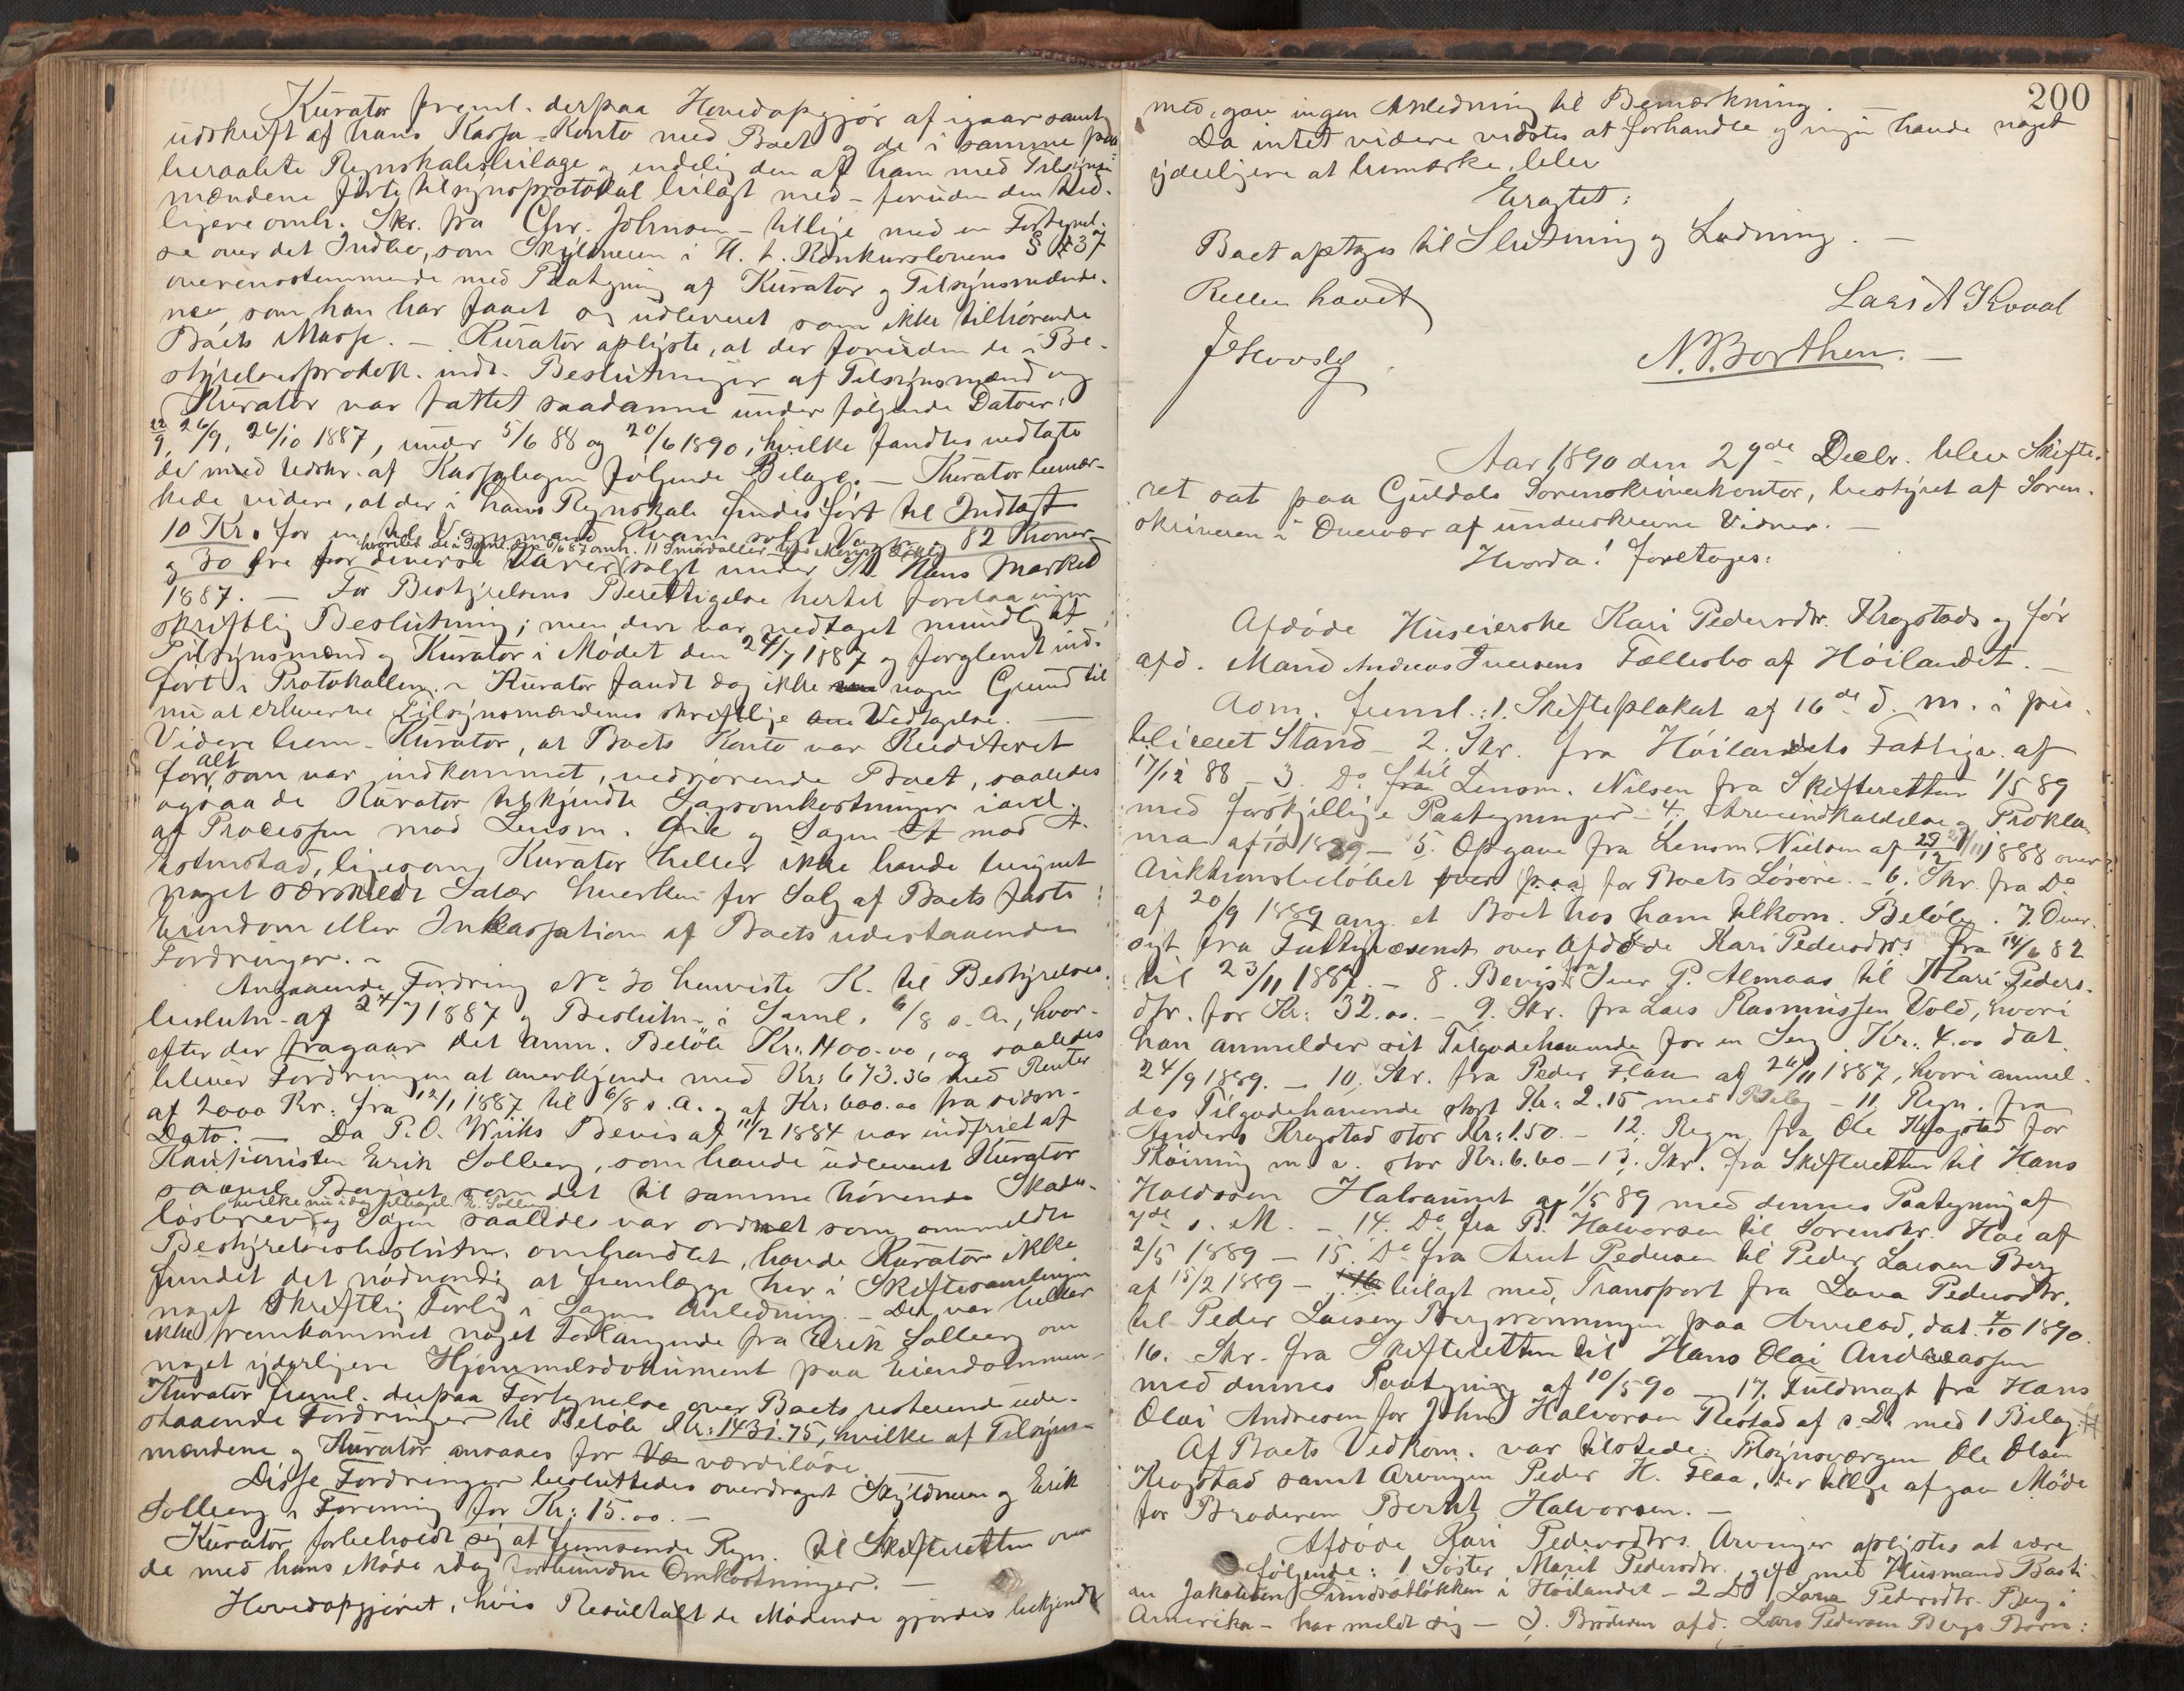 Kurator freml. derpaa Hovedopgjør af igaar samt
udskrift af hans Kassa-Konto med Boet og de i samme paa-
beraabte Regnskabsbilage og endelig den af ham med Tilsyns-
mændene førte tilsynsprotokol bilagt med - foruden den tid-
ligere omh. Skr. fra Chr. Johnsen - tillige med en Fortegnel-
se over det Indbo, som Skyldneren i H. t. Konkurslovens § 37
overensstemmende med Paategning af Kurator og Tilsynsmænde-
ne, som han har faaet sig udleveret som ikke tilhørende
Boets Masse. - Kurator oplyste, at der foruden de i Be-
styrelsesprotok. indt. Beslutninger af Tilsynsmænd og
Kurator var fattet saadanne under følgende Datoer:
22/9, 26/9, 26/10 1887, under 5/6 88 og 20/6 1890, hvilke fandtes vedlagte
de med Udskr. af Kassabogen følgende Bilage. - Kurator bemær-
kede videre, at der i hans Regnskab findes ført til Indtægt
10 Kr. for en til Vognmand Kvam solgt Vogn og 82 Kroner
hvoriblt. de i Saml. den 6/8 87 omh. 11
og 30 Øre for diverse Varer solgt under St. Hans Marked
1887. - For Bestyrelsens Berettigelse hertil forelaa ingen
skriftlig Beslutning; men den var vedtaget mundlig af
Tilsynsmænd og Kurator i Mødet den 24/7 1887 og forglemt ind-
ført i Protokollen. - Kurator fandt dog ikke nogen Grund til
nu at erhverve Tilsynsmændenes skriftlige Vedtagelse. -
Videre bem. Kurator, at Boets Konto var Krediteret
alt
for, som var indkommet, vedrørende Boet, saaledes
ogsaa de Kurator tilkjendte Sagsomkostninger i anl.
af Processen mod Lensm. og Sagen mod A.
Holmstad, ligesom Kurator heller ikke havde beregnet
noget særskildt Salær hverken for Salg af Boets faste
Eiendom eller Inkassation af Boets udestaaende
Fordringer. -
Angaaende Fordring No 30 henviste K. til Bestyrelses-
beslutn. af 24/7 1887 og Beslutn. i Saml. 6/8 s. A., hvor-
efter der fragaar det anm. Beløb Kr. 1400.00, og saaledes
bliver Fordringen at anerkjende med Kr: 673.36 med Renter
af 2000 Kr. fra 12/1 1887 til 6/8 s. A. og af Kr: 600.00 fra sidstn.
Dato. - Da P. O. Wiiks Bevis af 11/2 1884 var indfriet af
Kautionisten Erik Solberg, som havde udleveret Kurator
saavel Beviset som det til samme hørende Skades-
hvilke nu i dag tilbagel. E. Solberg
løsbrev, og Sagen saaledes var ordnet som anmeldte
Bestyrelsesbeslutn. omhandlet, havde Kurator ikke
fundet det nødvendig at fremlægge her i Skiftesamlingen
noget Skriftlig Forlig i Sagens Anledning. - Der var heller
ikke fremkommet noget Forlangende fra Erik Solberg om
noget yderligere Hjemmelsdokument paa Eiendommen. -
Kurator freml. derpaa Fortegnelse over Boets resterende ude-
staaende Fordringer til Beløb Kr: 1431.75, hvilke af Tilsyns-
mændene og Kurator ansaaes for værdiløse.
Disse Fordringer besluttedes overdraget Skyldneren og Erik
Solberg i Forening for Kr: 15.00. -
Kurator forbeholdt sig at fremsende Regn. til Skifteretten over
de med hans Møde idag forbundne Omkostninger. -
Hovedopgjøret, hvis Resultat de Mødende gjordes bekjendt
200
med, gav ingen Anledning til Bemærkning. -
Da intet videre vidstes at forhandle og ingen havde noget
yderligere at bemærke, blev
Eragtet:
Boet optages til Slutning og Lodning. -
Retten hævet
Lars A Kvaal
N. P. Borthen. -
Aar 1890 den 29de Decbr. blev Skifte-
ret sat paa Guldals Sorenskriverkontor, bestyret af Soren-
skriveren i Overvær af underskrevne Vidner. -
Hvorda! foretoges:
Afdøde Huseierske Kari Pedersdtr. Krogstads og før
afd. Mand Andreas Iversens Fællesbo af Höilandet. -
Adm. freml.: 1. Skifteplakat af 16de d. m. i pu-
bliceret Stand - 2. Skr. fra Höilandets Fattigv. af
17/12 88 - 3. Do til Lensm. Nilsen fra Skifteretten 1/5 89
med forskjellige Paategninger - 4. Arveindkaldelse og Prokla-
ma af 1889 - 5. Opgave fra Lensm. Nielsen af 1888 over
Auktionsbeløbet for Boets Løsøre. - 6. Skr. fra Do
af 20/9 1889 ang. et Boet hos ham tilkom. Beløb. 7. Over-
sigt fra Fattigvæsenet over Afdøde Kari Pedersdtrs fra 14/6 82
til 23/11 1887. - 8. Bevis fra Iver P. Almaas til Kari Peders-
dtr. for Kr: 32.00. - 9. Skr. fra Lars Rasmussen Vold, hvori
han anmelder sit Tilgodehavende for en Seng Kr. 4.00 dat.
24/9 1889. - 10. Skr. fra Peder Flaa af 26/11 1887, hvori anmel-
des Tilgodehavende stort Kr: 2.15 med Bilag - 11. Regn. fra
Anders Krogstad stor Kr: 1.50. - 12. Regn. fra Ole Krogstad for
Pløining m. v. stor Kr: 6.60 - 13. Skr. fra Skifteretten til Hans
Haldosen Halsaunet af 1/5 89 med dennes Paategning af
7de s. M. - 14. Do fra B. Halvorsen til Sorenskr. Hoë af
2/5 1889 - 15. Do fra Arnt Pedersen til Peder Larsen Berg
af 15/2 1889 - bilagt med, Transport fra Lava Pedersdtr.
til Peder Larsen Bergsrønningen paa Arvelod, dat. 7/10 1890.
16. Skr. fra Skifteretten til Hans Olai Andreassen
med dennes Paategning af 10/5 90 - 17. Fuldmagt fra Hans
Olai Andresen for John Halvorsen Restad af s. D. med 1 Bilag.
Af Boets Vedkom. var tilstede: Tilsynsværgen Ole Olsen
Krogstad samt Arvingen Peder H. Flaa, der tillige afgav Møde
for Broderen Bernt Halvorsen. -
Afdøde Kari Pedersdtrs Arvinger oplystes at være
følgende: 1. Søster Marit Pedersdtr. gift med Husmand Basti-
an Jakobsen Sundsetløkken i Höilandet - 2. Do Lava Pedersdtr. Berg i
Amerika - har meldt sig - 3. Broderen afd. Lars Pedersen Bergs Børn: